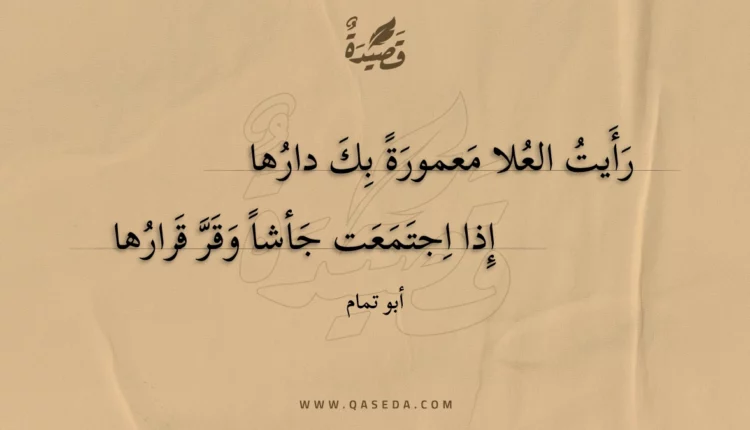 قَصِيدَةٌ
رَأَيتُ العُلا مَعمورَةً بِكَ دارُها
إِذا اِجتَمَعَت جَأشاً وَقَرَّ قَرارُها
أبو تمام
WWW.QASEDA.COM